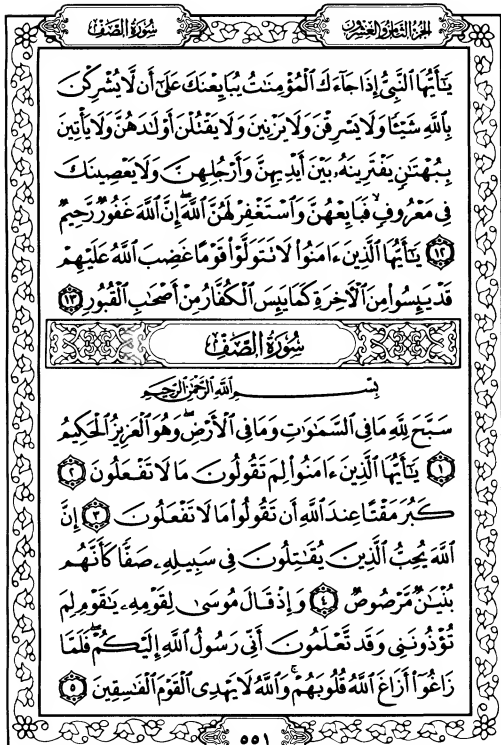 سُورَةُ الصَّفِّ
الجُزْءُ الثَّامِنُ وَالعِشْرُونَ
يَٰٓأَيُّهَا ٱلنَّبِىُّ إِذَا جَآءَكَ ٱلْمُؤْمِنَٰتُ يُبَايِعْنَكَ عَلَىٰٓ أَن لَّا يُشْرِكْنَ
بِٱللَّهِ شَيْـًٔا وَلَا يَسْرِقْنَ وَلَا يَزْنِينَ وَلَا يَقْتُلْنَ أَوْلَٰدَهُنَّ وَلَا يَأْتِينَ
بِبُهْتَٰنٍ يَفْتَرِينَهُۥ بَيْنَ أَيْدِيهِنَّ وَأَرْجُلِهِنَّ وَلَا يَعْصِينَكَ
فِى مَعْرُوفٍ ۙ فَبَايِعْهُنَّ وَٱسْتَغْفِرْ لَهُنَّ ٱللَّهَ ۖ إِنَّ ٱللَّهَ غَفُورٌ رَّحِيمٌ
١٢ يَٰٓأَيُّهَا ٱلَّذِينَ ءَامَنُوا۟ لَا تَتَوَلَّوْا۟ قَوْمًا غَضِبَ ٱللَّهُ عَلَيْهِمْ
قَدْ يَئِسُوا۟ مِنَ ٱلْءَاخِرَةِ كَمَا يَئِسَ ٱلْكُفَّارُ مِنْ أَصْحَٰبِ ٱلْقُبُورِ ١٣
سُورَةُ الصَّفِّ
بِسْمِ ٱللَّهِ ٱلرَّحْمَٰنِ ٱلرَّحِيمِ
سَبَّحَ لِلَّهِ مَا فِى ٱلسَّمَٰوَٰتِ وَمَا فِى ٱلْأَرْضِ ۖ وَهُوَ ٱلْعَزِيزُ ٱلْحَكِيمُ
١ يَٰٓأَيُّهَا ٱلَّذِينَ ءَامَنُوا۟ لِمَ تَقُولُونَ مَا لَا تَفْعَلُونَ ٢
كَبُرَ مَقْتًا عِندَ ٱللَّهِ أَن تَقُولُوا۟ مَا لَا تَفْعَلُونَ ٣ إِنَّ
ٱللَّهَ يُحِبُّ ٱلَّذِينَ يُقَٰتِلُونَ فِى سَبِيلِهِۦ صَفًّا كَأَنَّهُم
بُنْيَٰنٌ مَّرْصُوصٌ ٤ وَإِذْ قَالَ مُوسَىٰ لِقَوْمِهِۦ يَٰقَوْمِ لِمَ
تُؤْذُونَنِى وَقَد تَّعْلَمُونَ أَنِّى رَسُولُ ٱللَّهِ إِلَيْكُمْ ۖ فَلَمَّا
زَاغُوٓا۟ أَزَاغَ ٱللَّهُ قُلُوبَهُمْ ۚ وَٱللَّهُ لَا يَهْدِى ٱلْقَوْمَ ٱلْفَٰسِقِينَ ٥
٥٥١